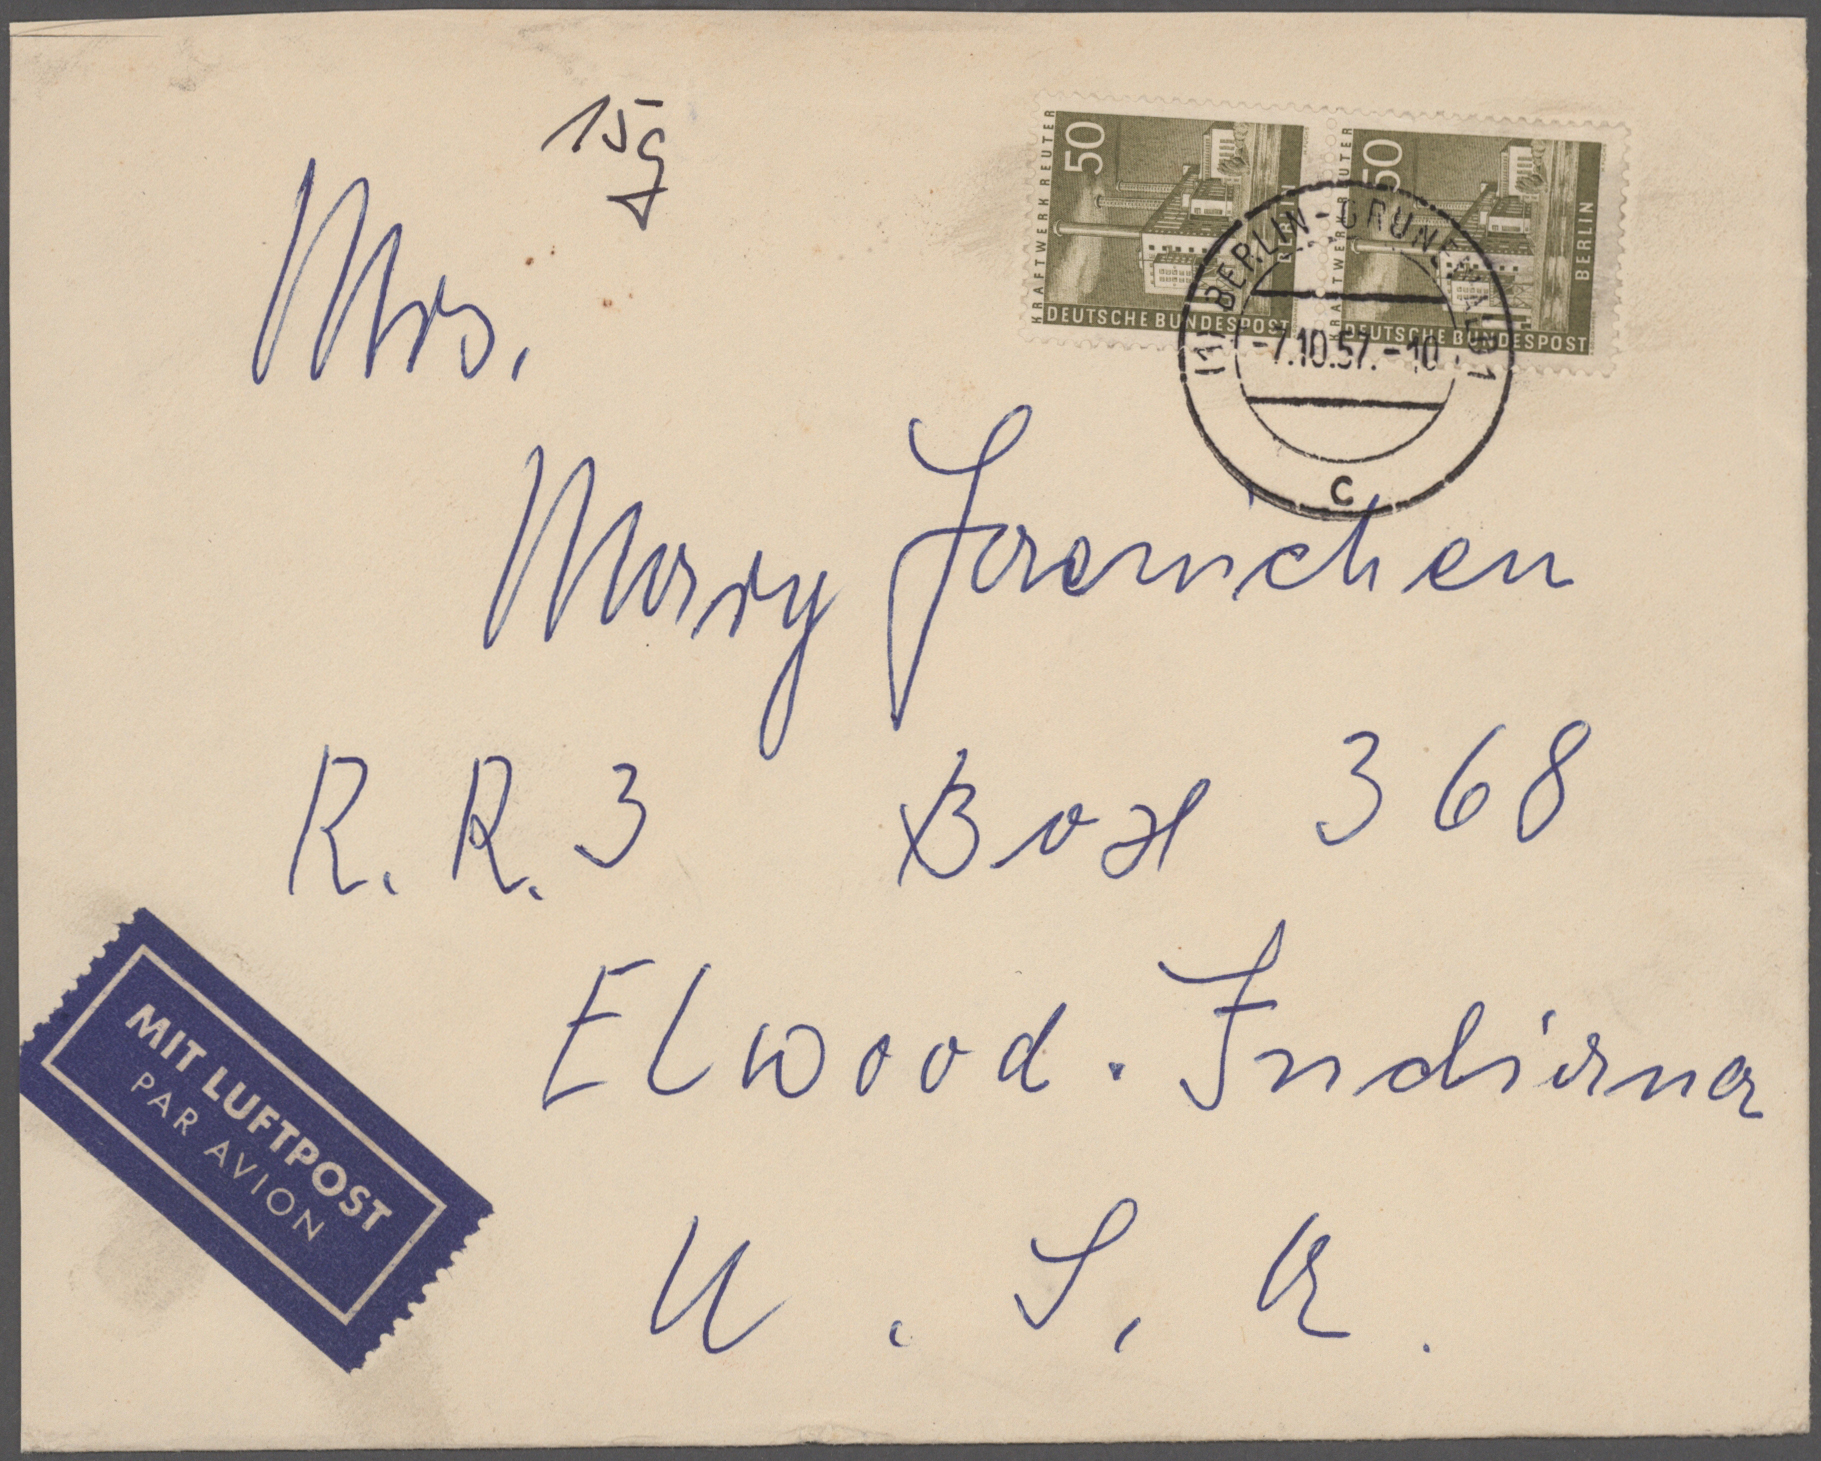 15g
KRAFTWERK REUTER
50
BERLIN
DEUTSCHE BUNDESPOST
KRAFTWERK REUTER
50
BERLIN
DEUTSCHE BUNDESPOST
(1) BERLIN-GRUNEWALD 1
-7.10.57.-10
c
Mrs.
Mary Jaenichen
R. R. 3 Box 368
Elwood. Indiana
U. S. A.
MIT LUFTPOST
PAR AVION